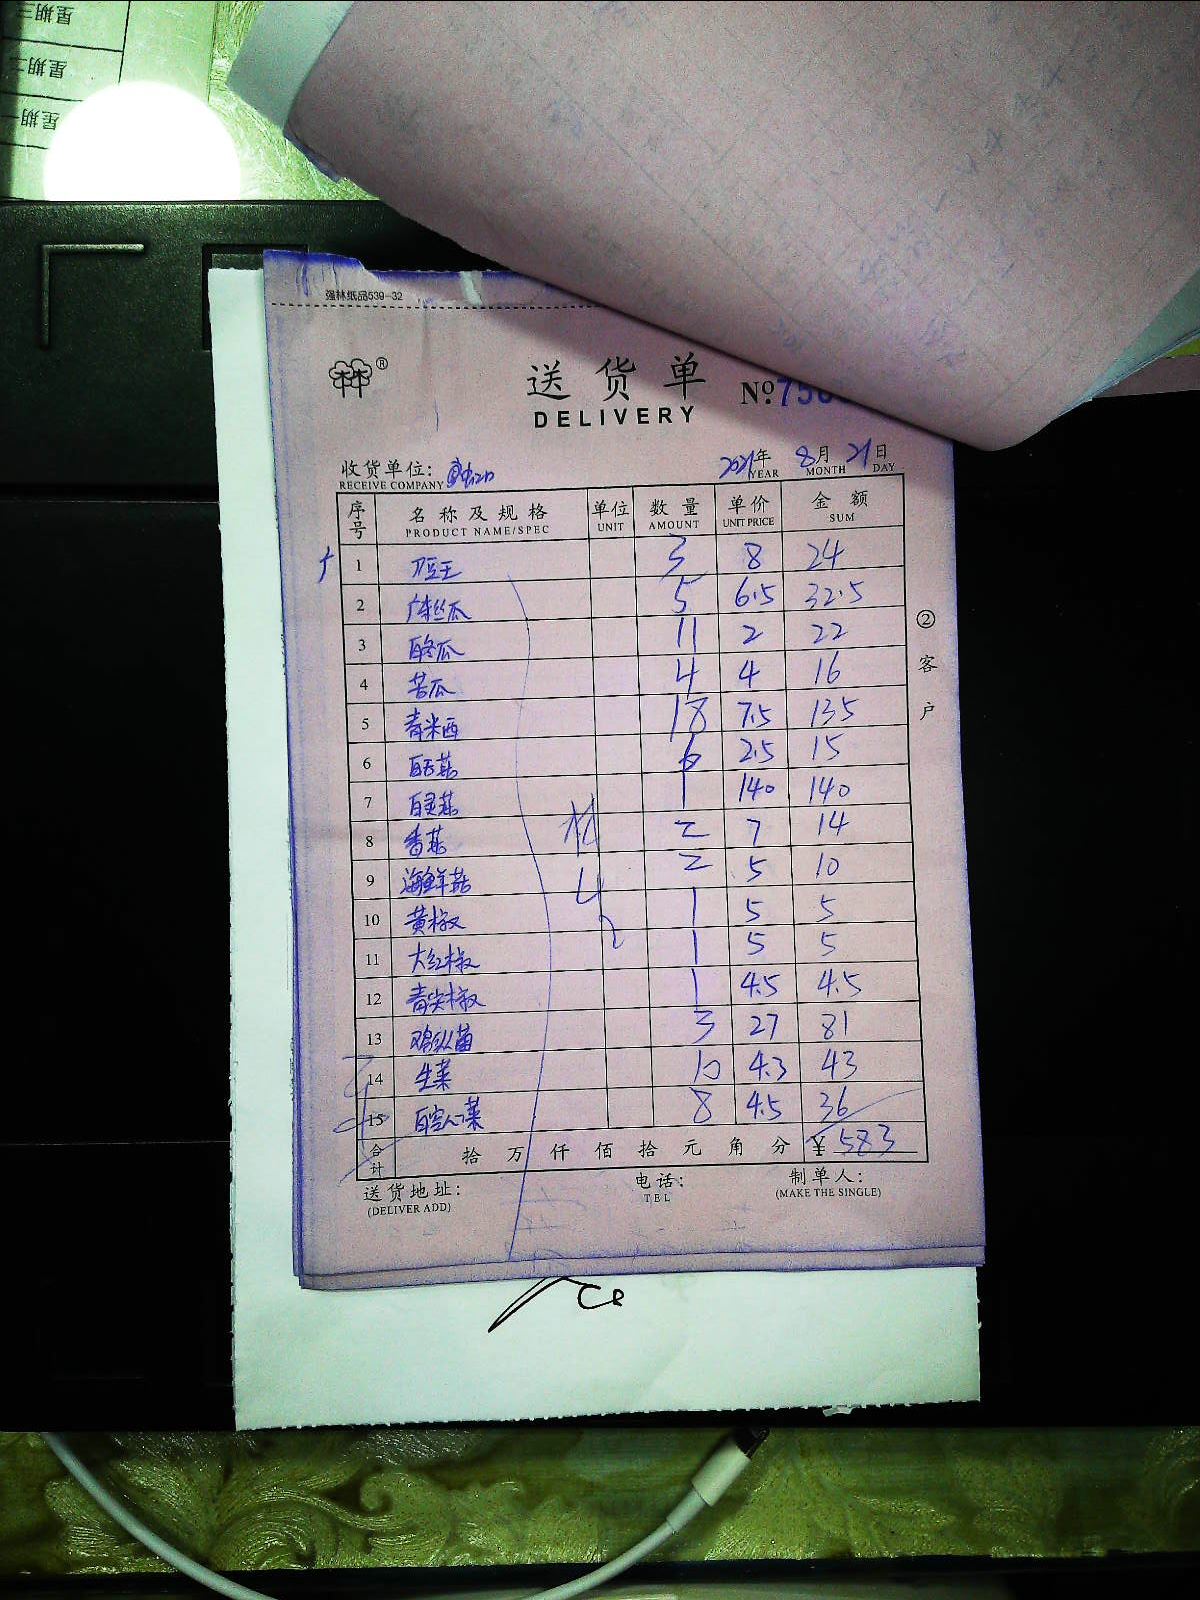 星期三
星期二
星期一
强林纸品539-32
林林®
送货单
DELIVERY
№.75
收货单位:
RECEIVE COMPANY
2021年 8月 21日
YEAR MONTH DAY
序号 名称及规格 单位 数量 单价 金额
PRODUCT NAME/SPEC UNIT AMOUNT UNIT PRICE SUM
1 刀豆王 3 8 24
2 广东丝瓜 5 6.5 32.5
3 白冬瓜 11 2 22
4 苦瓜 4 4 16
5 青米西 18 7.5 135
6 白玉菇 6 2.5 15
7 白灵菇 1 140 140
8 香菇 2 7 14
9 海鲜菇 2 5 10
10 黄椒 1 5 5
11 大红椒 1 5 5
12 青尖椒 1 4.5 4.5
13 鸡枞菌 3 27 81
14 生菜 10 4.3 43
15 白空心菜 8 4.5 36
合计 拾 万 仟 佰 拾 元 角 分 ¥ 583
送货地址: 电话: 制单人:
(DELIVER ADD) TEL (MAKE THE SINGLE)
②客户